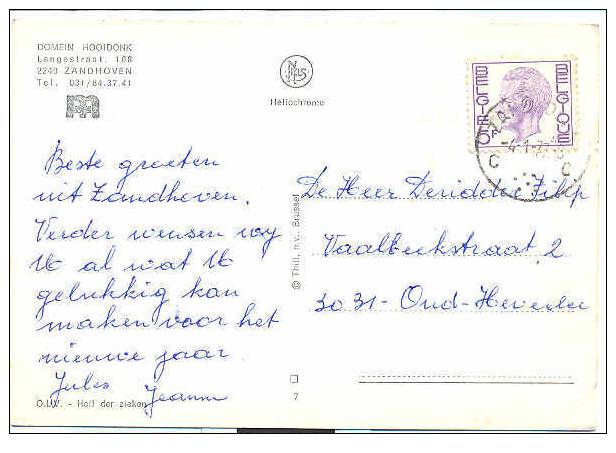 DOMEIN HOOIDONK
Langestraat. 188
2240 ZANDHOVEN
Tel. 031/84.37.41
NELS
Heliochrome
BELGIE BELGIQUE
C C
Beste groeten
uit Zandhoven.
Verder wensen wy
U al wat U
gelukkig kan
maken voor het
nieuwe jaar
Jules Jeanne
De Heer Deridder Filip
Vaalbeekstraat, 2
3031 - Oud-Heverlee
© Thill, n.v., Brussel
7
O.L.V. - Heil der zieken